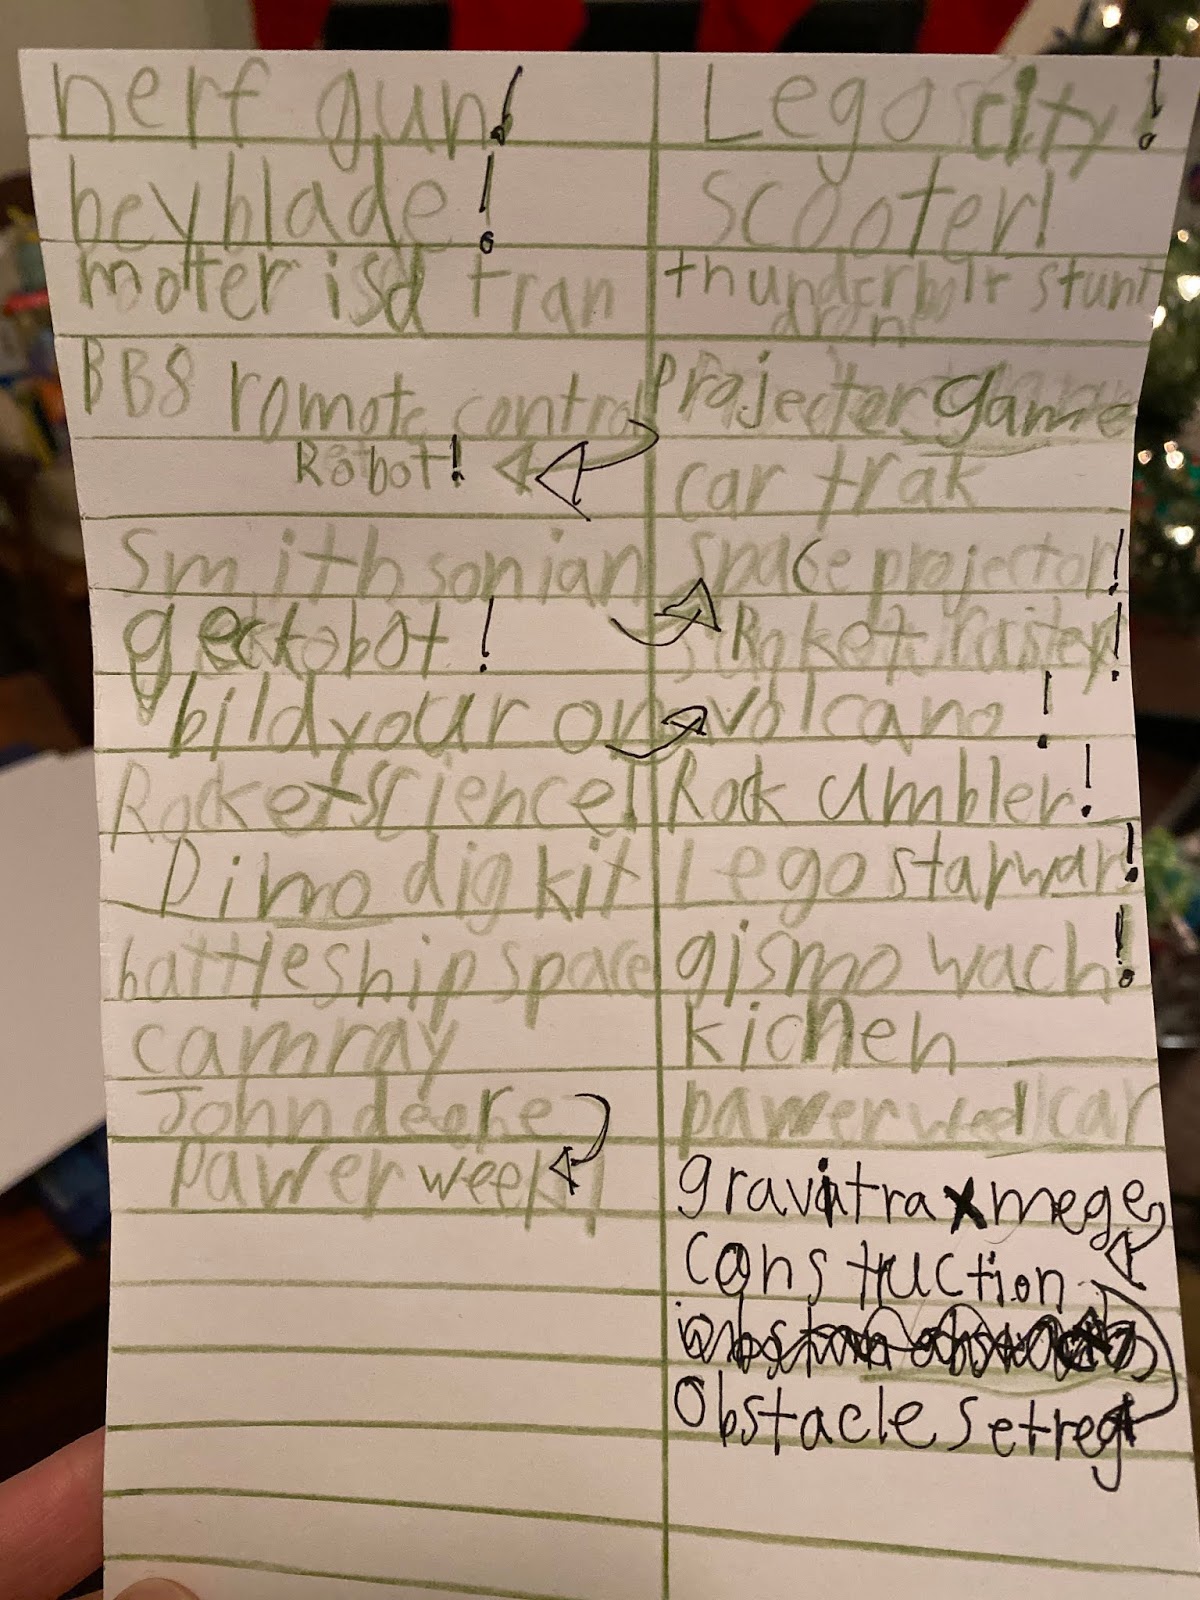 nerf gun!
beyblade!
motter isd tran
BB8 romote control
Robot!
Smithsonian
geckobot!
bild your on
Rocket science!
Dino dig kit
battleship space
camray
John deere
pawer weel!
Lego city!
scooter!
thunderbolt stunt
dron
projecter game
car trak
space projector!
Roket
volcano!
Rock umbler!
Lego starwar!
gismo wach!
kichen
pawer weel car
gravitrax mege
construction
Obstacle set